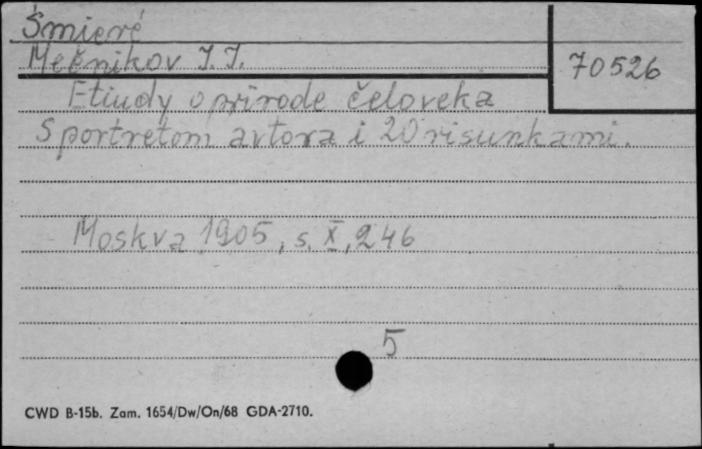 Śmierć
Mečnikov J. J.
70526
Etiudy o prirode čeloveka
S portretom avtora i 20 risunkami.
Moskva 1905, s. X, 246
5
CWD B-15b. Zam. 1654/Dw/On/68 GDA-2710.